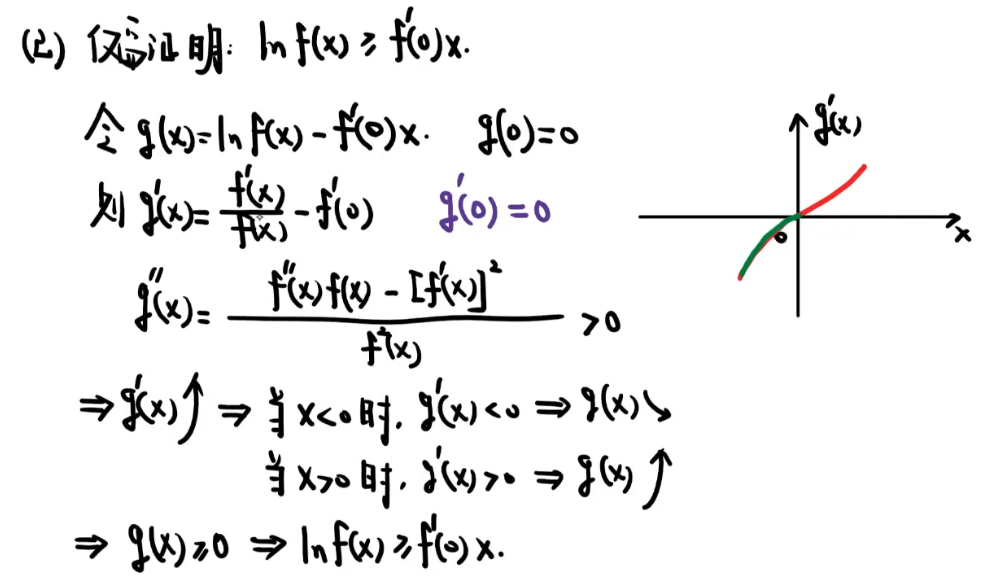 (2) 仅需证明: ln f(x) ≥ f'(0)x.
令 g(x)=ln f(x) - f'(0)x. g(0)=0
则 g'(x)= f'(x)/f(x) - f'(0) g'(0)=0
g''(x)= (f''(x)f(x) - [f'(x)]²)/f²(x) >0
⇒ g'(x)↑ ⇒ 当 x<0 时, g'(x)<0 ⇒ g(x)↘
当 x>0 时, g'(x)>0 ⇒ g(x)↑
⇒ g(x)≥0 ⇒ ln f(x) ≥ f'(0)x.
g'(x)
0
x